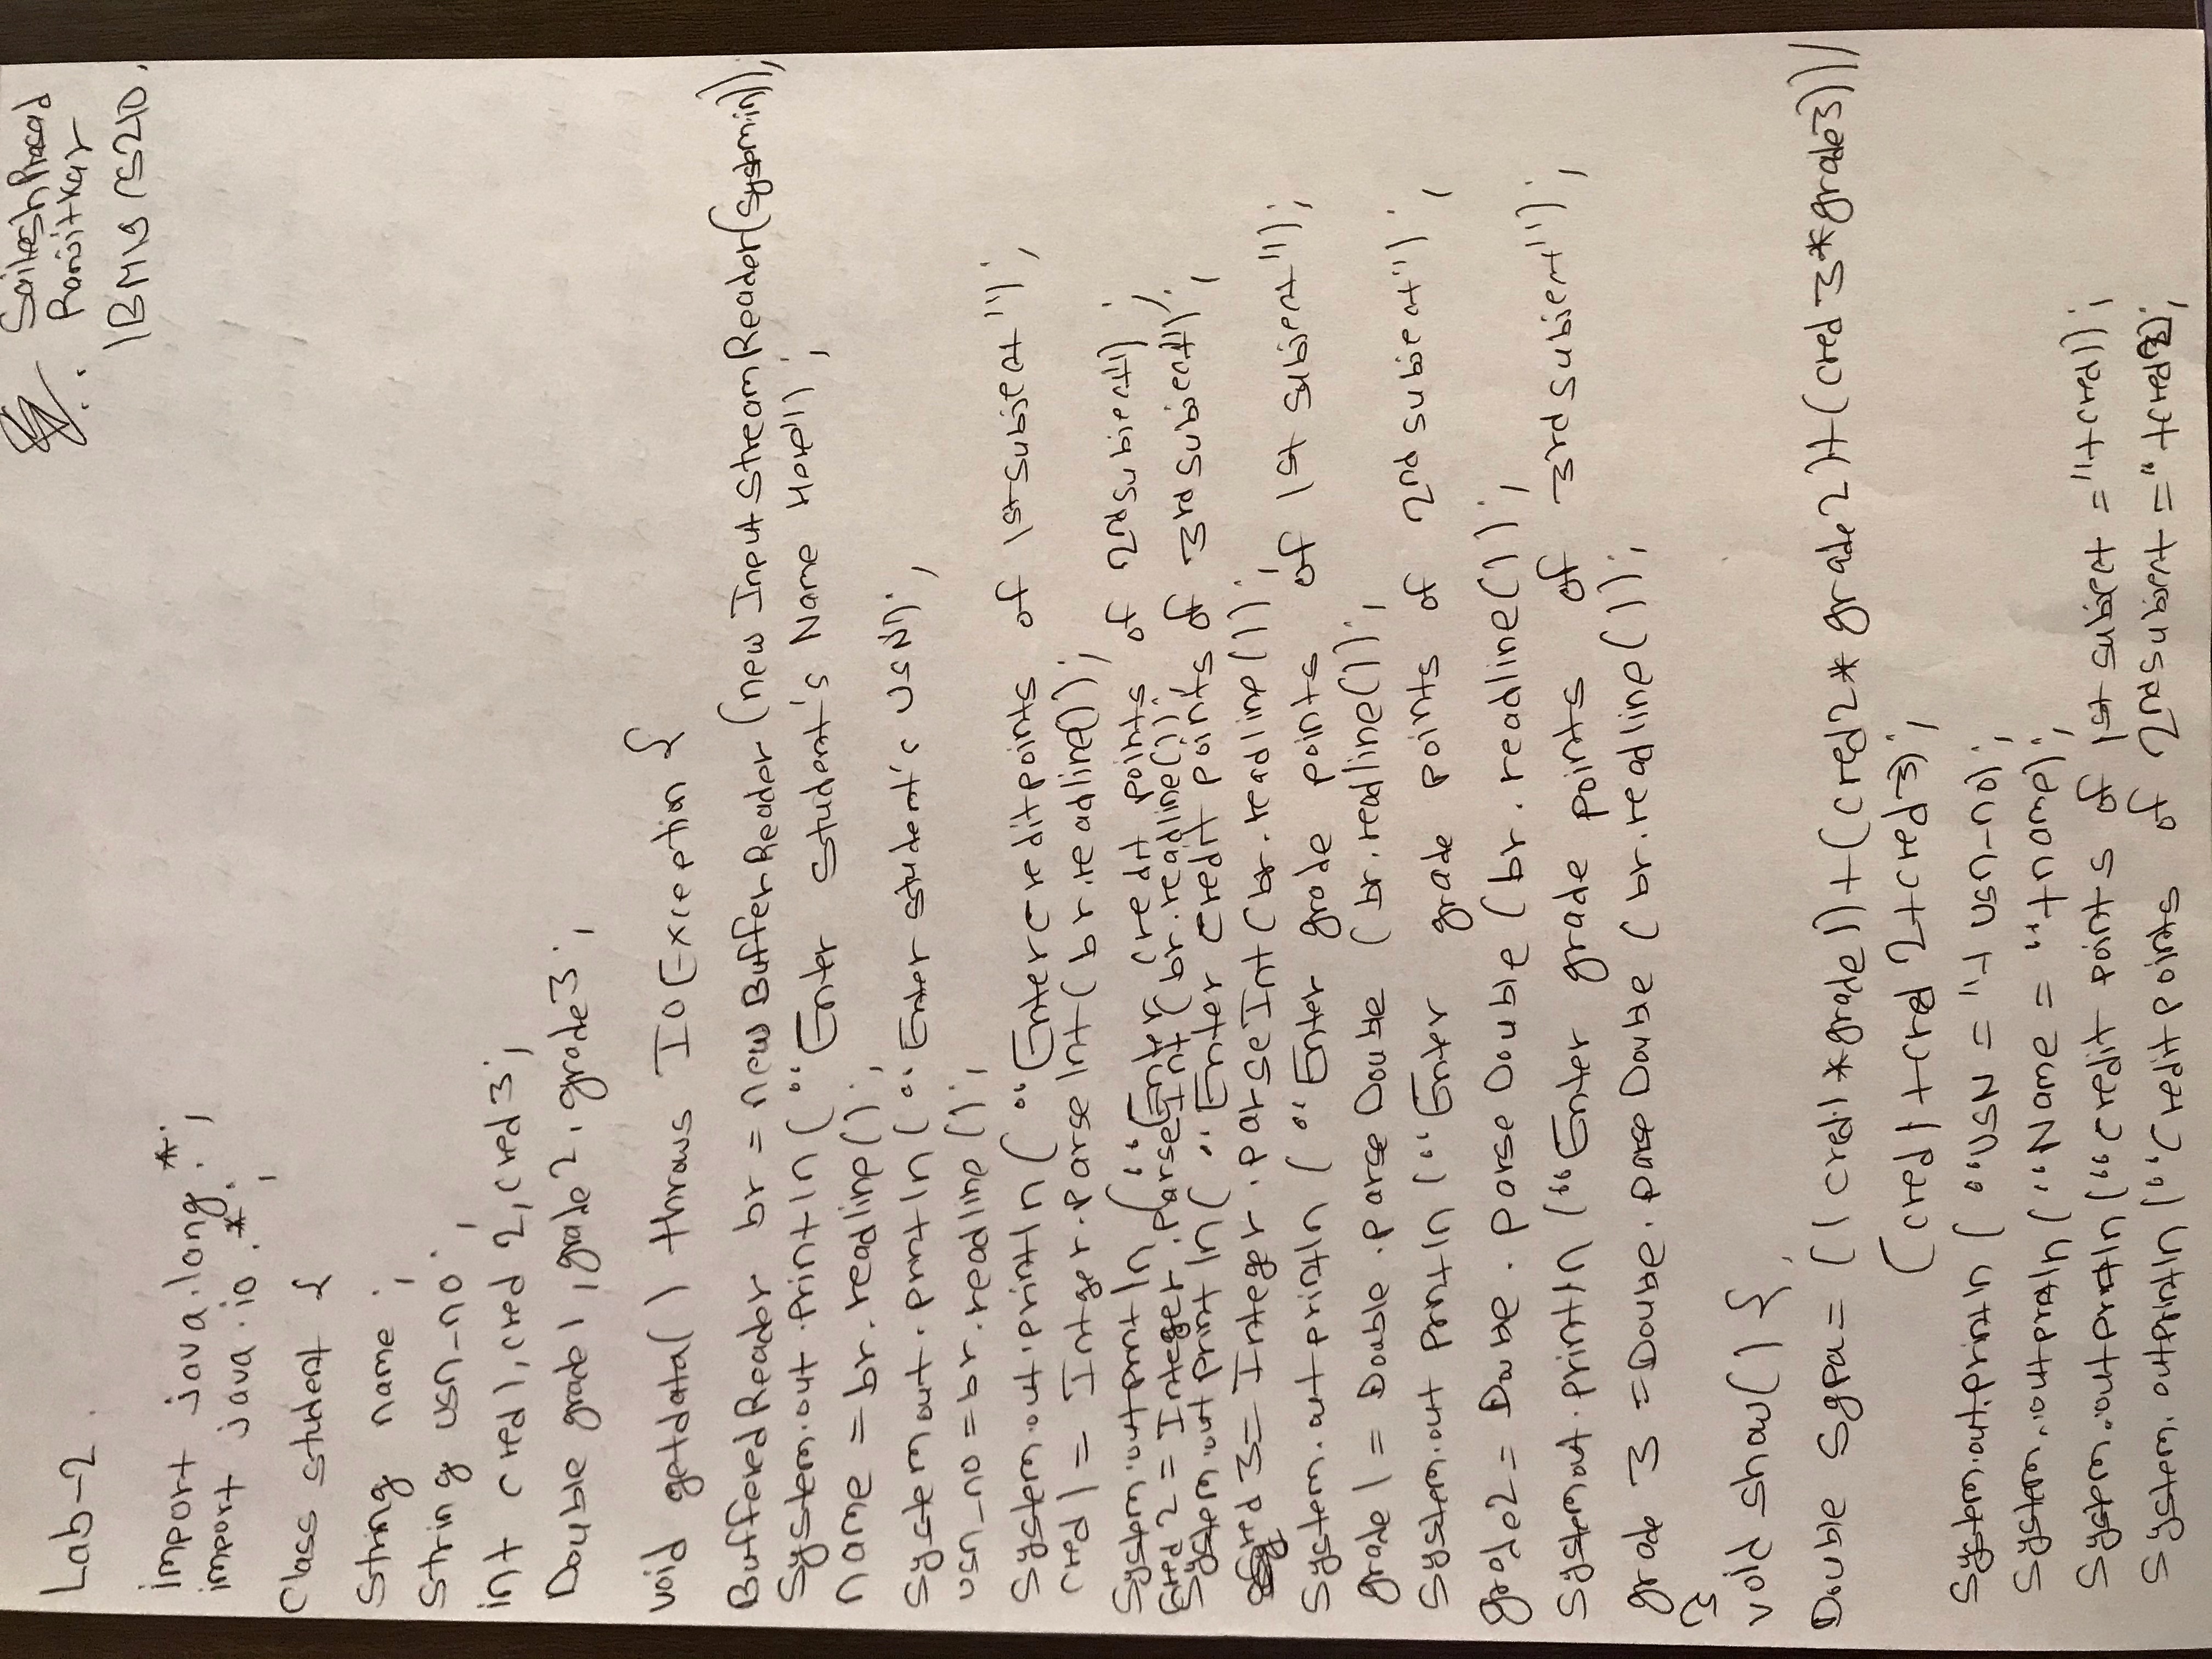 Lab-2.
Sailesh Prasad
Ranjitkar
1BM19CS210.
import java.lang.*;
import java.io.*;
Class student {
String name;
String usn_no;
int cred1, cred 2, cred 3;
Double grade1, grade2, grade3;
void getdata() throws IOException {
BufferedReader br = new BufferReader (new InputStreamReader(system.in));
System.out.println("Enter student's Name Here");
name = br.readline();
System out.println("Enter student's USN");
usn_no = br.readline();
System.out.println("Enter credit points of 1st subject");
cred1 = Intger.parseInt(br.readline());
System.out println ("Enter credit points of 2nd subject");
Cred 2 = Integer.ParseInt(br.readline());
System.out println("Enter credit points of 3rd subject");
cred 3= Integer.parseInt(br.readline());
System.out println ("Enter grade points of 1st subject");
grade1 = Double.parseDouble (br.readline());
System.out println ("Enter grade points of 2nd subject");
grade2 = Double.parseDouble (br.readline());
System out.println ("Enter grade points of 3rd subject");
grade 3 = Double.parseDouble (br.readline());
}
void show() {
Double Sgpa = ((cred1*grade1)+(cred2*grade2)+(cred 3*grade3))/
(cred1+cred 2+cred3);
System.out.println ("USN = "+ usn_no);
System.out println ("Name = "+name);
System.out println ("Credit points of 1st subject ="+cred1);
System.out println ("Credit points of 2nd subject ="+cred2);